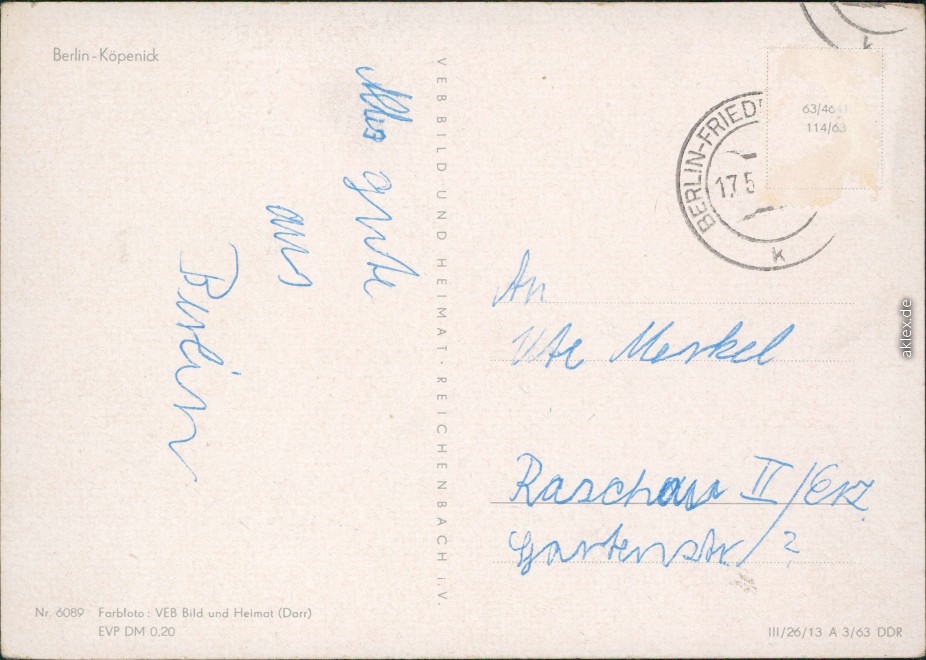 Berlin-Köpenick
Alles gute
aus
Berlin
VEB BILD UND HEIMAT · REICHENBACH i.V.
63/4641
114/63
BERLIN-FRIED
17.5
k
k
An
Ute Merkel
Raschau II/Erz
Gartenstr.
Nr. 6089 Farbfoto: VEB Bild und Heimat (Darr)
EVP DM 0.20
III/26/13 A 3/63 DDR
aklex.de